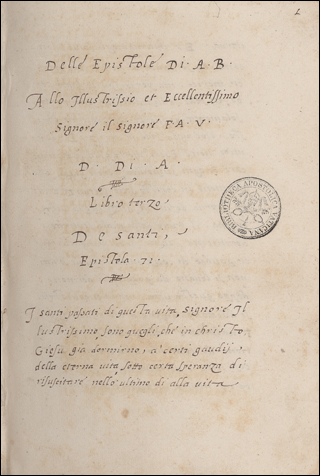 Delle Epistole Di. A. B.
Allo Illustrissio et Eccellentissimo
Signore il signore F. A. V.
D. Di. A.
Libro terzo
De santi,
Epistola 71.
BIBLIOTHECA APOSTOLICA VATICANA
I santi passati di questa vita, signore Il
lustrissimo, sono quegli, che in christo
Giesu già dormirno, a' certi gaudij
della eterna vita, sotto certa speranza di
risuscitare nello ultimo dì alla vita